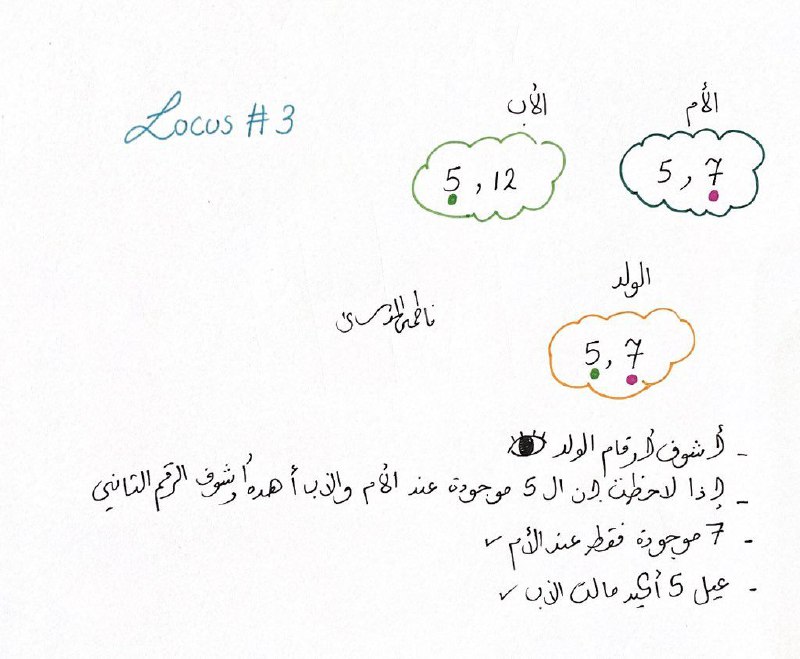 Locus # 3
الأم
5 , 7
الأب
5 , 12
الولد
5 , 7
- أشوف أرقام الولد
- إذا لاحظت إن ال 5 موجودة عند الأم والاب أهده وأشوف الرقم الثاني
- 7 موجودة فقط عند الأم ✓
- عيل 5 أكيد مالت الأب ✓